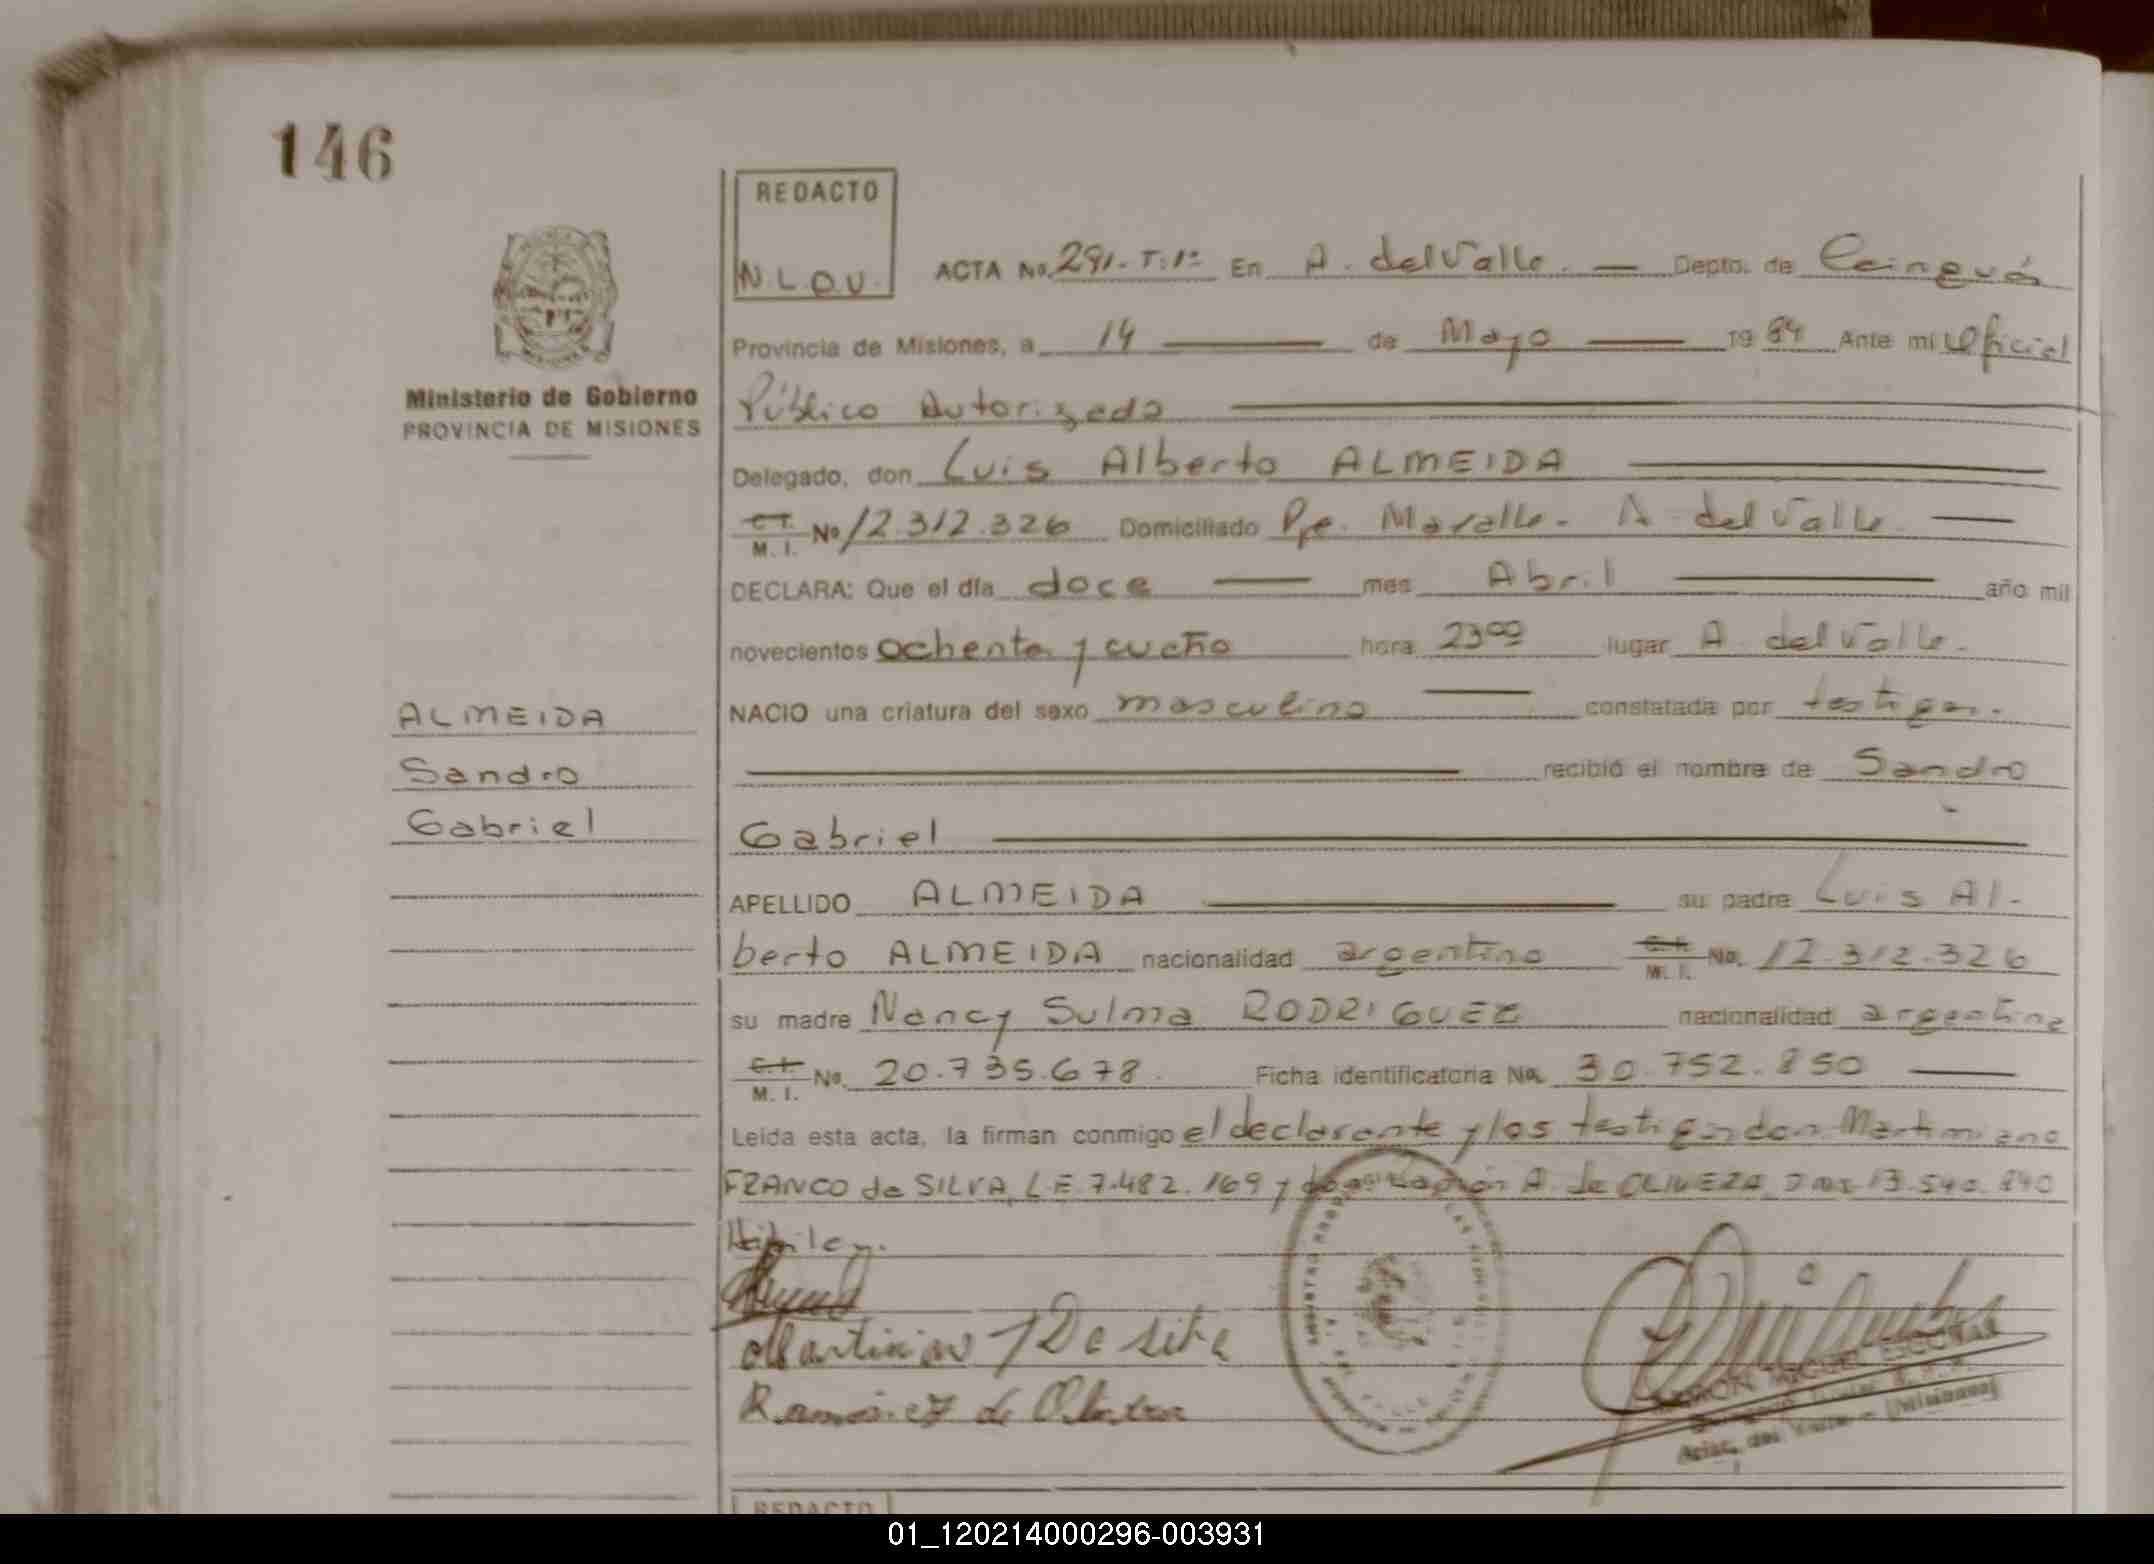 146
REDACTO
N.L.O.V.
ACTA No. 291.-T:1º En A. del Valle. — Depto. de Cainguás
Provincia de Misiones, a 14 — de Mayo — 1984 Ante mi Oficial
Ministerio de Gobierno
PROVINCIA DE MISIONES
Público Autorizado
Delegado, don Luis Alberto ALMEIDA
C.I. M. I. No 12.312.326 Domiciliado Pje. A. del Valle. —
DECLARA: Que el día doce — mes Abril — año mil
novecientos ochenta y cuatro hora 23⁰⁰ lugar A. del Valle.
NACIO una criatura del sexo masculino — constatada por testigos.
recibió el nombre de Sandro
Gabriel
ALMEIDA
Sandro
Gabriel
APELLIDO ALMEIDA — su padre Luis Al-
berto ALMEIDA nacionalidad argentino C.I. M. I. No. 12.312.326
su madre Nancy Sulma RODRIGUEZ nacionalidad argentina
C.I. M. I. No. 20.735.678. Ficha identificatoria No. 30.752.850 —
Leída esta acta, la firman conmigo el declarante y los testigos don Martimiano
FRANCO de SILVA, L.E. 7.482.169 y A. de OLIVERA, 13.540.840
Hábiles.
REDACTO
01_120214000296-003931